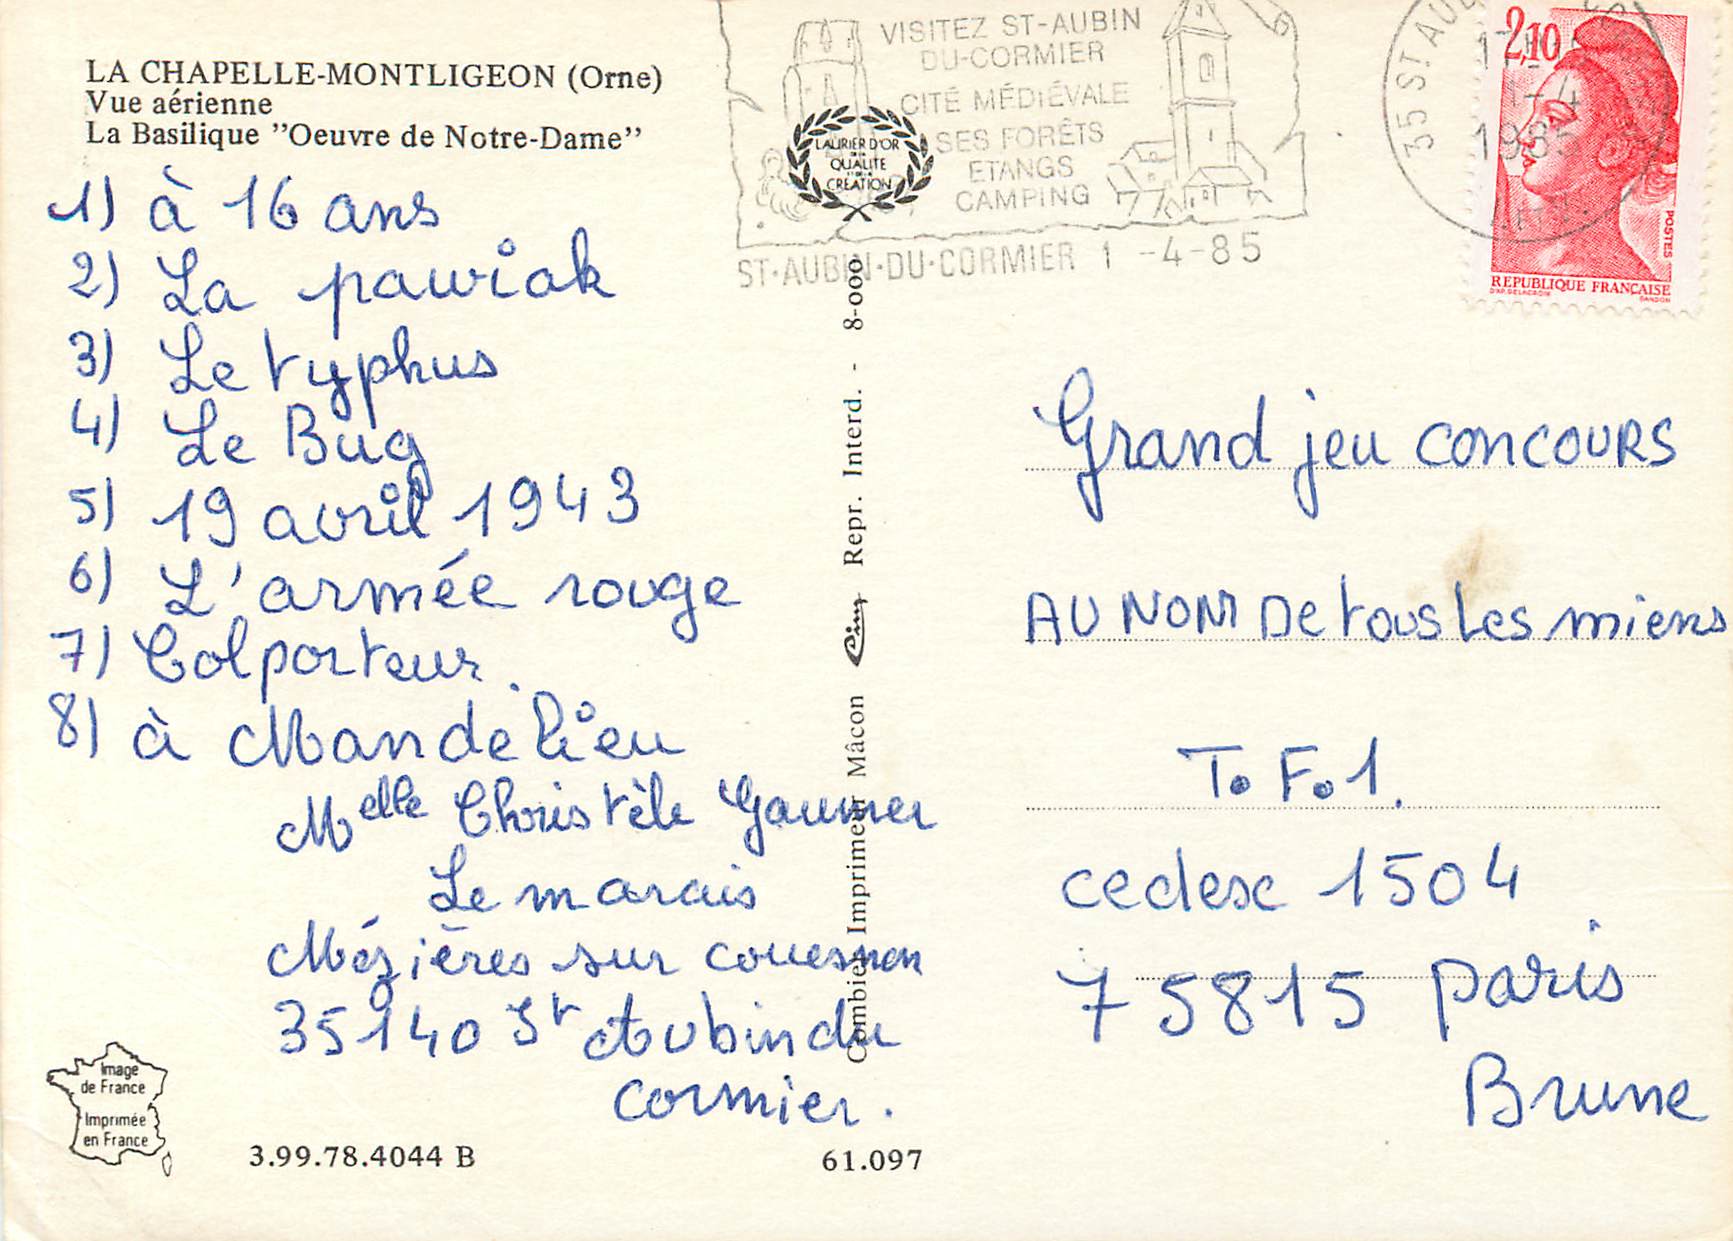 LA CHAPELLE-MONTLIGEON (Orne)
Vue aérienne
La Basilique "Oeuvre de Notre-Dame"
1) à 16 ans
2) La pawiak
3) Le typhus
4) Le Bug
5) 19 avril 1943
6) L'armée rouge
7) Colporteur.
8) à Mandelieu
Melle Christèle Gaumer
Le marais
Mézières sur couesnon
35140 St Aubin du
cormier.
Image
de France
Imprimée
en France
3.99.78.4044 B
61.097
VISITEZ ST-AUBIN
DU-CORMIER
CITÉ MÉDIÉVALE
SES FORÊTS
ETANGS
CAMPING
ST-AUBIN-DU-CORMIER 1 -4-85
LAURIER D'OR
DE LA
QUALITE
ET DE LA
CREATION
Combier Imprimeur Mâcon Cim Repr. Interd. - 8-000
35 ST. AU
1-4
1985
2,10
POSTES
REPUBLIQUE FRANÇAISE
D'AP. DELACROIX GANDON
Grand jeu concours
AU NOM De tous Les miens
To Fo 1.
cedesc 1504
75815 Paris
Brune